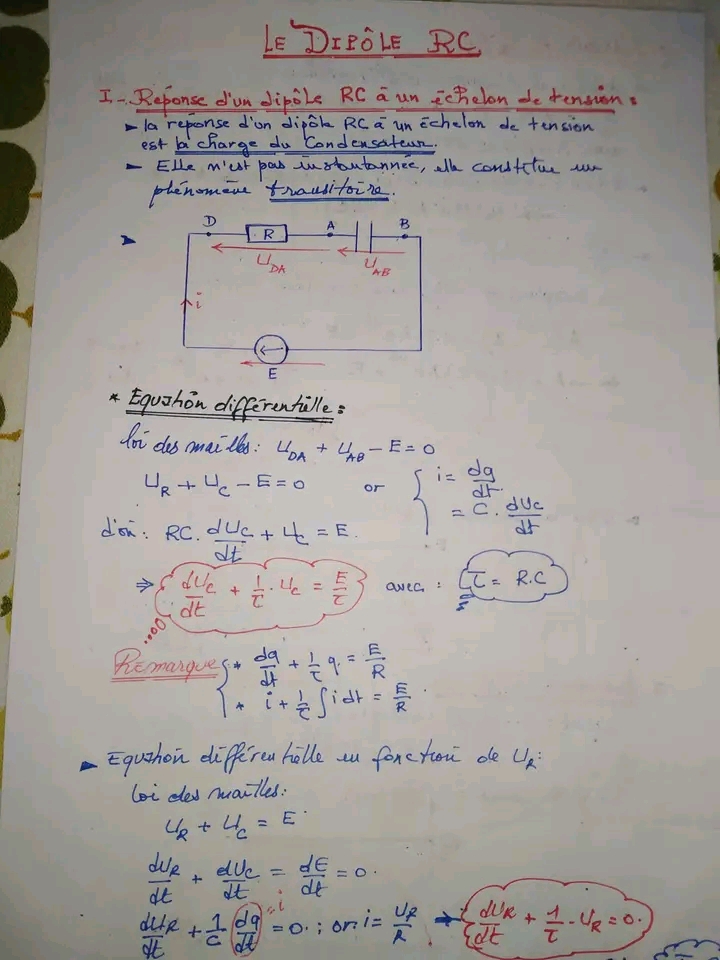 LE DIPÔLE RC
I- Réponse d'un dipôle RC à un échelon de tension :
➤ la réponse d'un dipôle RC à un échelon de tension
est la charge du Condensateur.
➤ Elle n'est pas instantannée, elle constitue un
phénomène transitoire.
D R A B
U_DA U_AB
i
E
* Equation différentielle :
loi des mailles : U_DA + U_AB - E = 0
U_R + U_C - E = 0 or { i = dq/dt = C . dU_C/dt
d'où : RC . dU_C/dt + U_C = E.
⇒ dU_C/dt + 1/τ . U_C = E/τ avec : τ = R.C
Remarque { * dq/dt + 1/τ q = E/R
* i + 1/τ ∫ i dt = E/R
➤ Equation différentielle en fonction de U_R :
loi des mailles :
U_R + U_C = E
dU_R/dt + dU_C/dt = dE/dt = 0.
dU_R/dt + 1/C dq/dt = 0 . ; or i = U_R/R ➔ dU_R/dt + 1/τ . U_R = 0.
= i